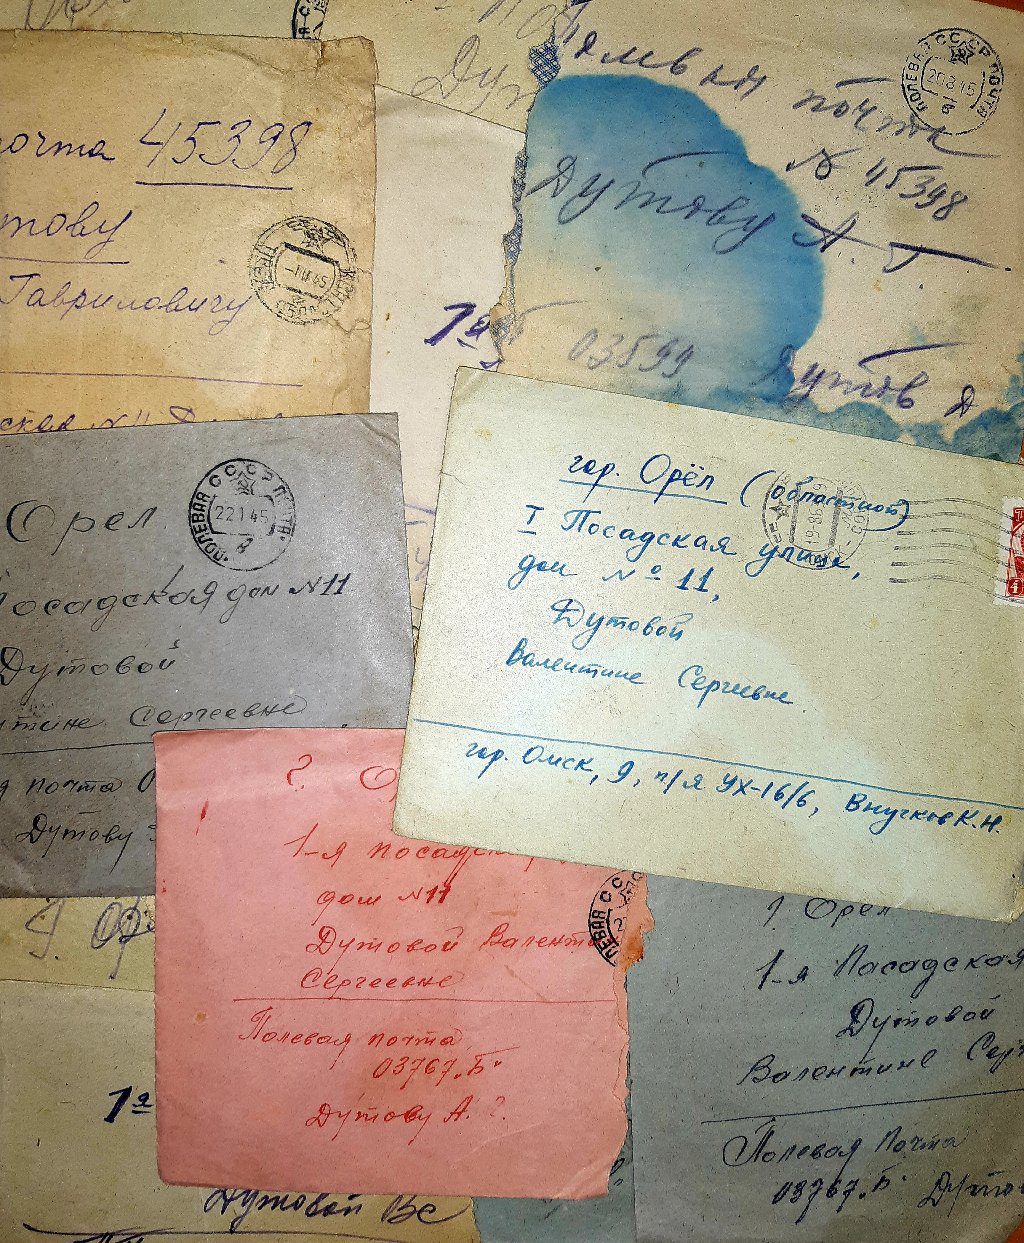 почта 45398
тову
Гавриловичу
ПОЛЕВАЯ СССР ПОЧТА
20 8 45
почта
№ 45398
Дутову А. Г.
03599 Дутов А
1я
Орел
ПОЛЕВАЯ СССР ПОЧТА
22 1 45
Посадская дом №11
Дутовой
тине Сергеевне
я почта 0
Дутову
гор. Орёл (областной)
I Посадская улица,
дом № 11,
Дутовой
Валентине Сергеевне
гор. Омск, 9, п/я УХ-16/6, Внучков К.Н.
1-я посадск
дом №11
Дутовой Валенти
Сергеевне
Полевая почта
03767 „Б“
Дутову А. Г.
г. Орел
1-я Посадская
Дутовой
Валентине Сер
Полевая Почта
03767 „Б“ Дутов
г. Ор
1я
Дутовой Вс